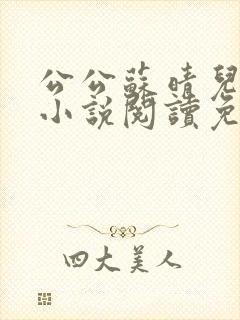 公公蘇晴兒
小說閱讀免
四大美人